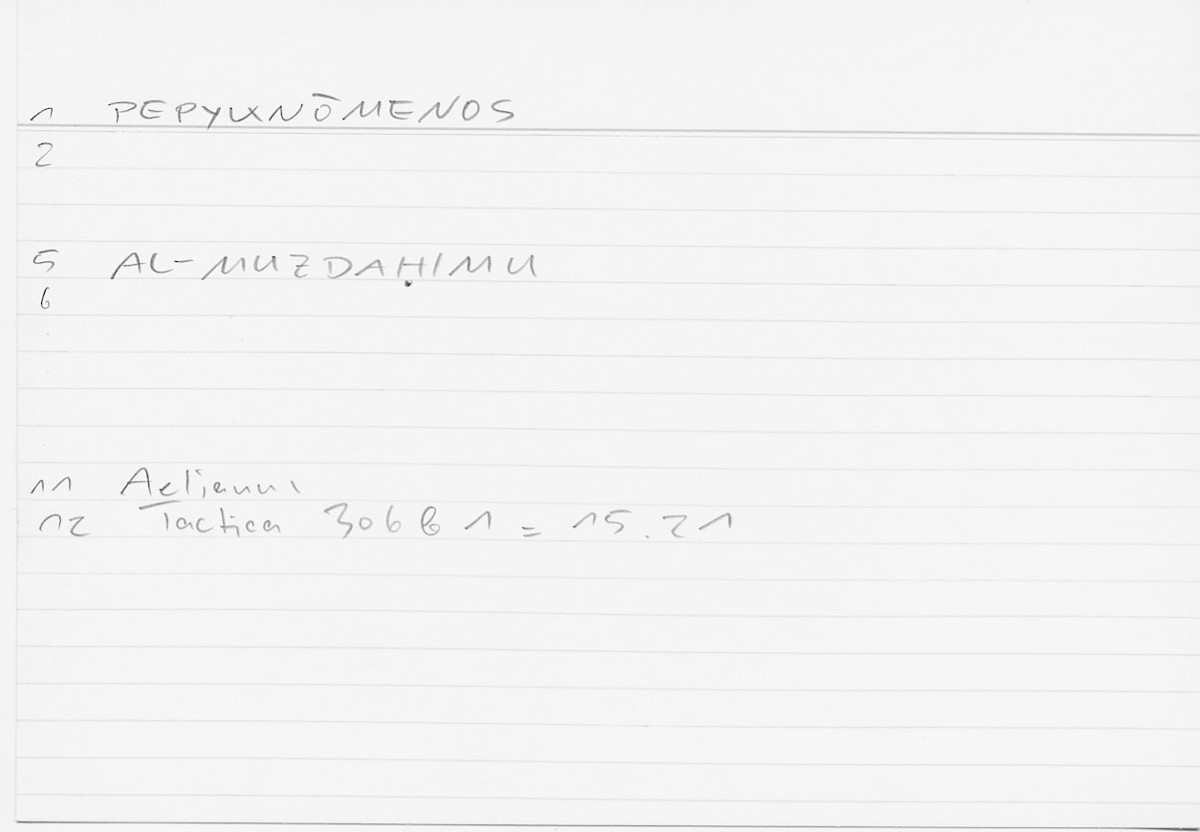 1 PEPYKNŌMENOS
2
5 AL-MUZDAḤIMU
6
11 Aelianus
12 Tactica 306 b 1 = 15.21